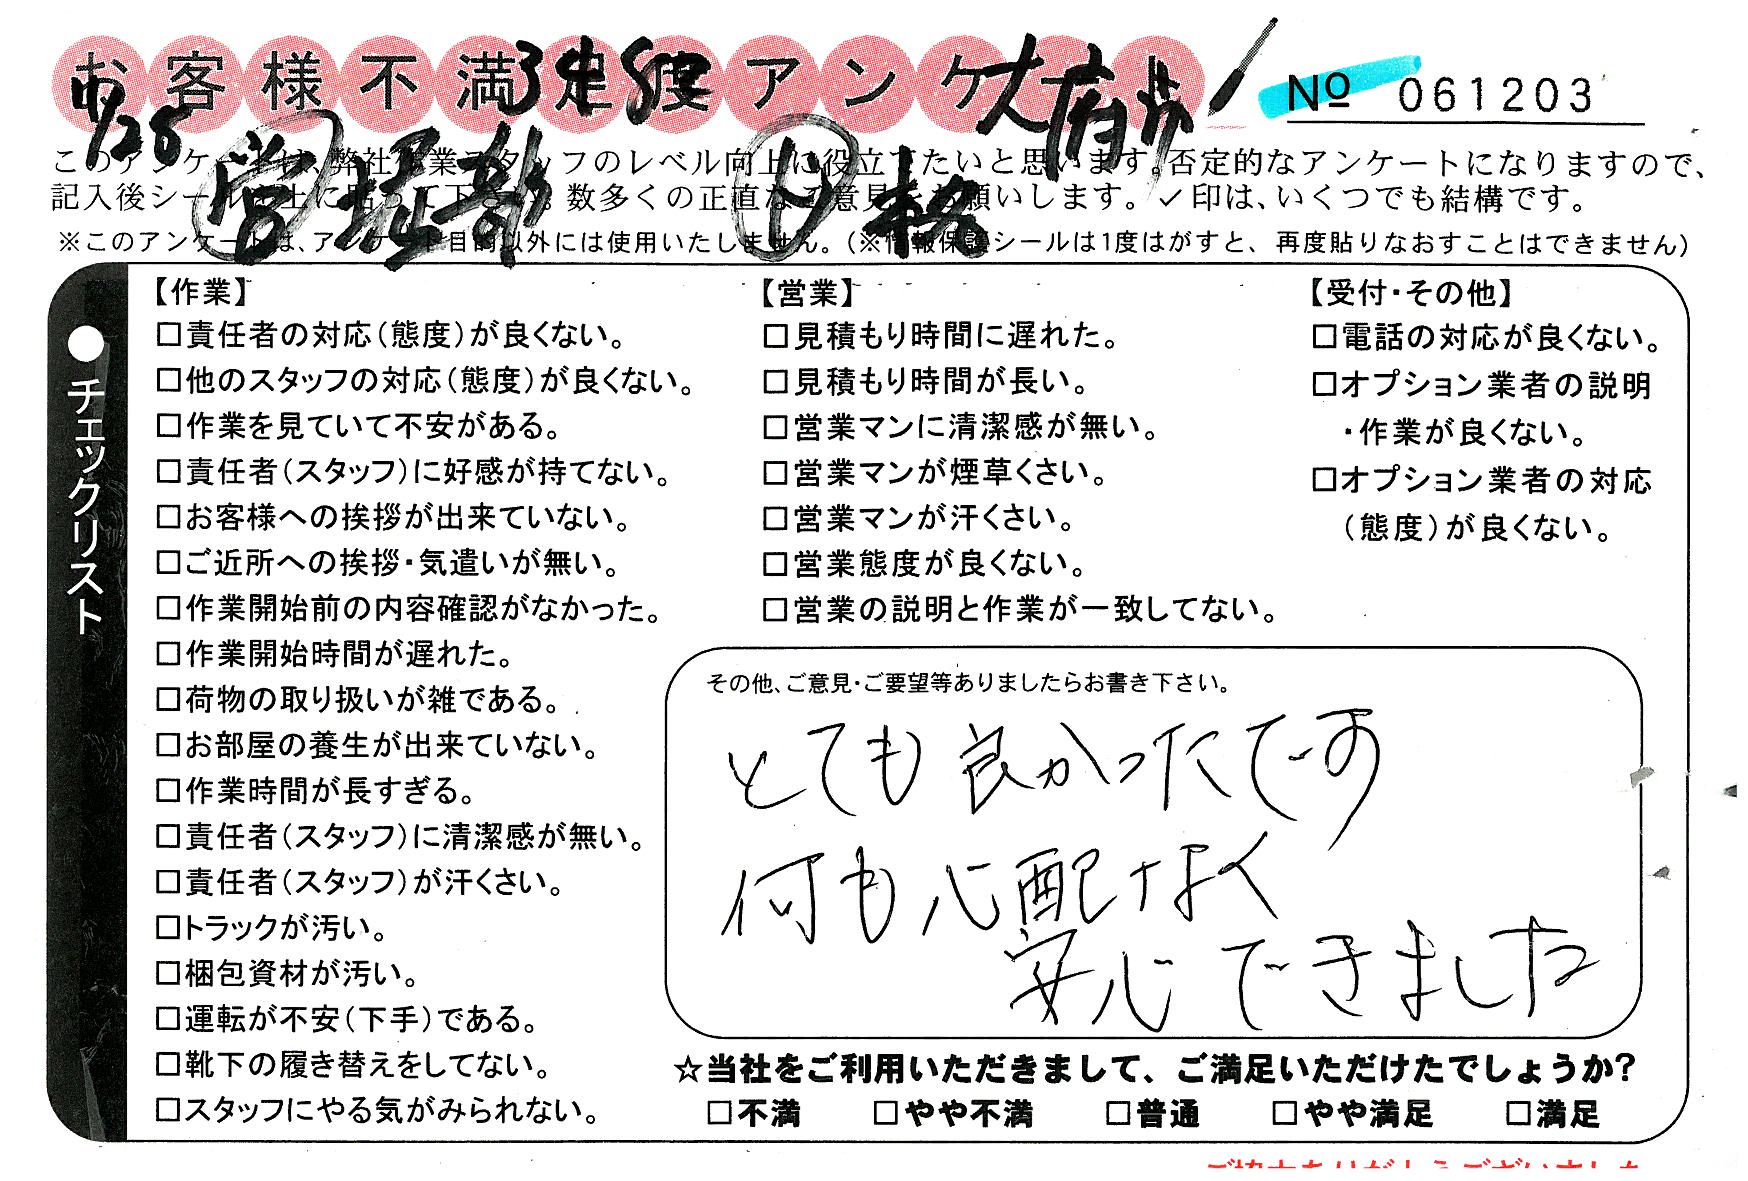 お客様不満足度アンケート
№ 061203
11/28
このアンケートは、弊社作業スタッフのレベル向上に役立てたいと思います。否定的なアンケートになりますので、
記入後シールを上に貼って下さい。数多くの正直なご意見をお願いします。✓印は、いくつでも結構です。
※このアンケートは、アンケート目的以外には使用いたしません。(※情報保護シールは1度はがすと、再度貼りなおすことはできません)
●チェックリスト
【作業】
□責任者の対応(態度)が良くない。
□他のスタッフの対応(態度)が良くない。
□作業を見ていて不安がある。
□責任者(スタッフ)に好感が持てない。
□お客様への挨拶が出来ていない。
□ご近所への挨拶・気遣いが無い。
□作業開始前の内容確認がなかった。
□作業開始時間が遅れた。
□荷物の取り扱いが雑である。
□お部屋の養生が出来ていない。
□作業時間が長すぎる。
□責任者(スタッフ)に清潔感が無い。
□責任者(スタッフ)が汗くさい。
□トラックが汚い。
□梱包資材が汚い。
□運転が不安(下手)である。
□靴下の履き替えをしてない。
□スタッフにやる気がみられない。
【営業】
□見積もり時間に遅れた。
□見積もり時間が長い。
□営業マンに清潔感が無い。
□営業マンが煙草くさい。
□営業マンが汗くさい。
□営業態度が良くない。
□営業の説明と作業が一致してない。
【受付・その他】
□電話の対応が良くない。
□オプション業者の説明
・作業が良くない。
□オプション業者の対応
(態度)が良くない。
その他、ご意見・ご要望等ありましたらお書き下さい。
とても良かったです
何も心配なく
安心できました
☆当社をご利用いただきまして、ご満足いただけたでしょうか?
□不満 □やや不満 □普通 □やや満足 □満足
ご協力ありがとうございました